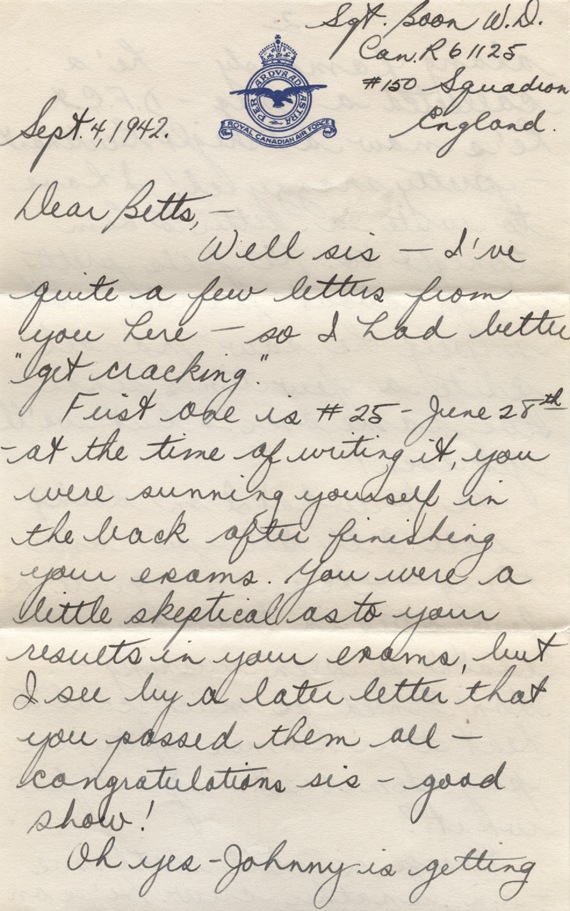 Sgt. Boon W.D.
Can. R 61125
#150 Squadron
England.
PER ARDUA AD ASTRA
ROYAL CANADIAN AIR FORCE
Sept. 4, 1942.
Dear Betts,-
Well sis - I've
quite a few letters from
you here - so I had better
"get cracking."
First one is #25 - June 28th
-at the time of writing it, you
were sunning yourself in
the back after finishing
your exams. You were a
little skeptical as to your
results in your exams, but
I see by a later letter that
you passed them all -
congratulations sis - good
show!
Oh yes - Johnny is getting